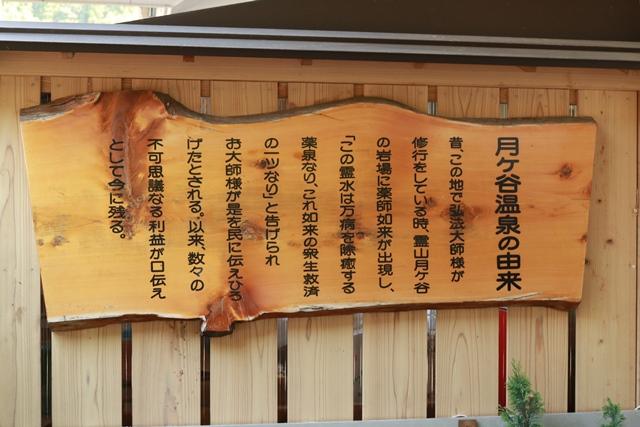 月ヶ谷温泉の由来
昔、この地で弘法大師様が
修行をしている時、霊山月ヶ谷
の岩場に薬師如来が出現し、
「この霊水は万病を除癒する
薬泉なり、これ如来の衆生救済
の一ツなり」と告げられ
お大師様が是を民に伝えひろ
げたとされる。以来、数々の
不可思議なる利益が口伝え
として今に残る。